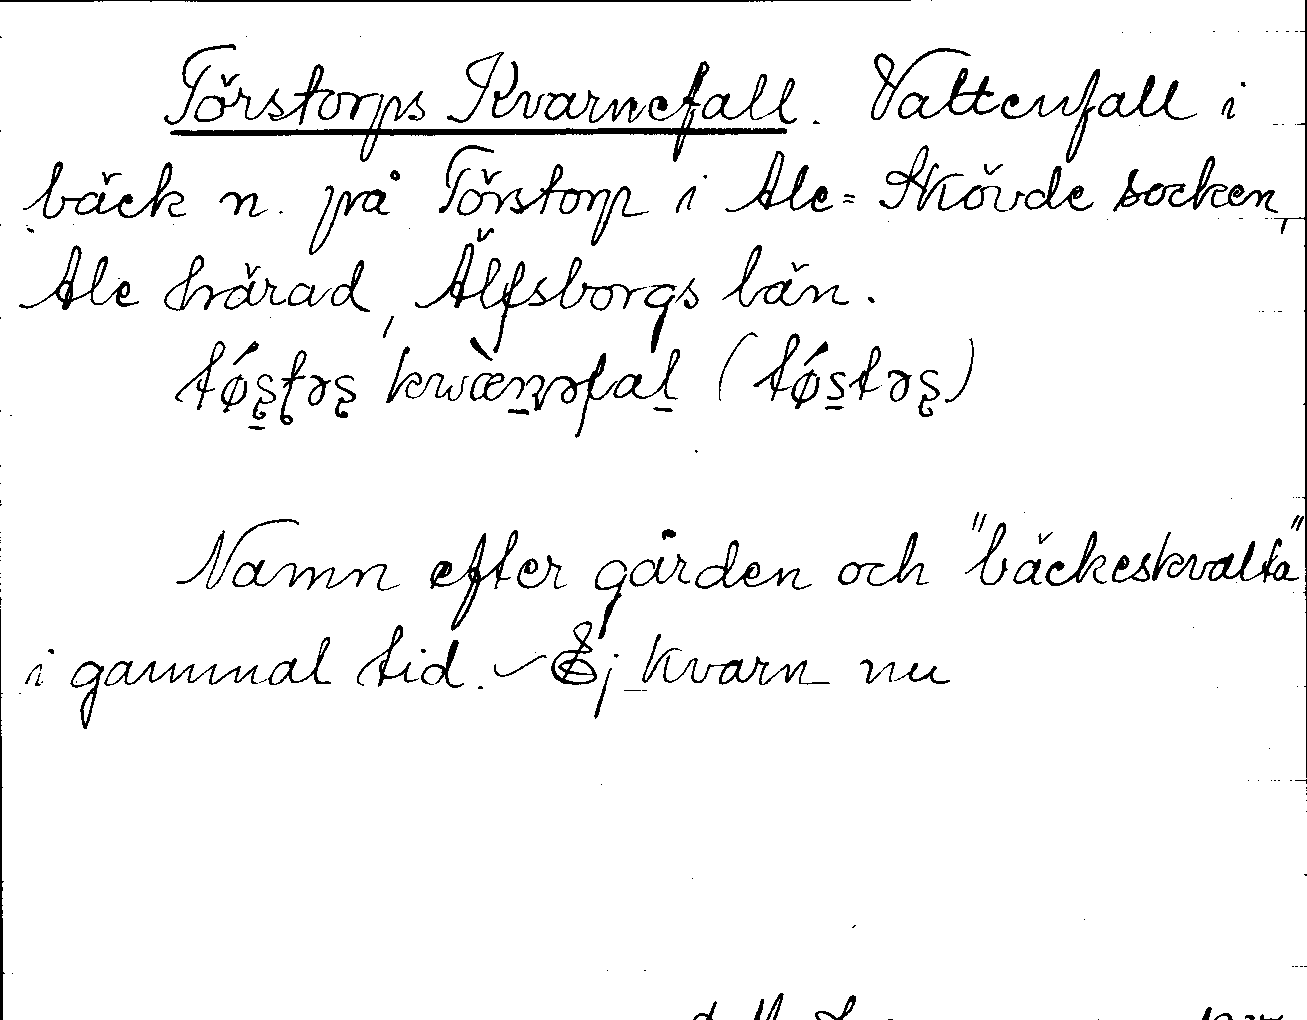 Törstorps Kvarnefall. Vattenfall i
bäck n. på Törstorp i Ale=Skövde socken,
Ale härad, Älfsborgs län.
Namn efter gården och "bäckeskvalta"
i gammal tid. – Ej kvarn nu